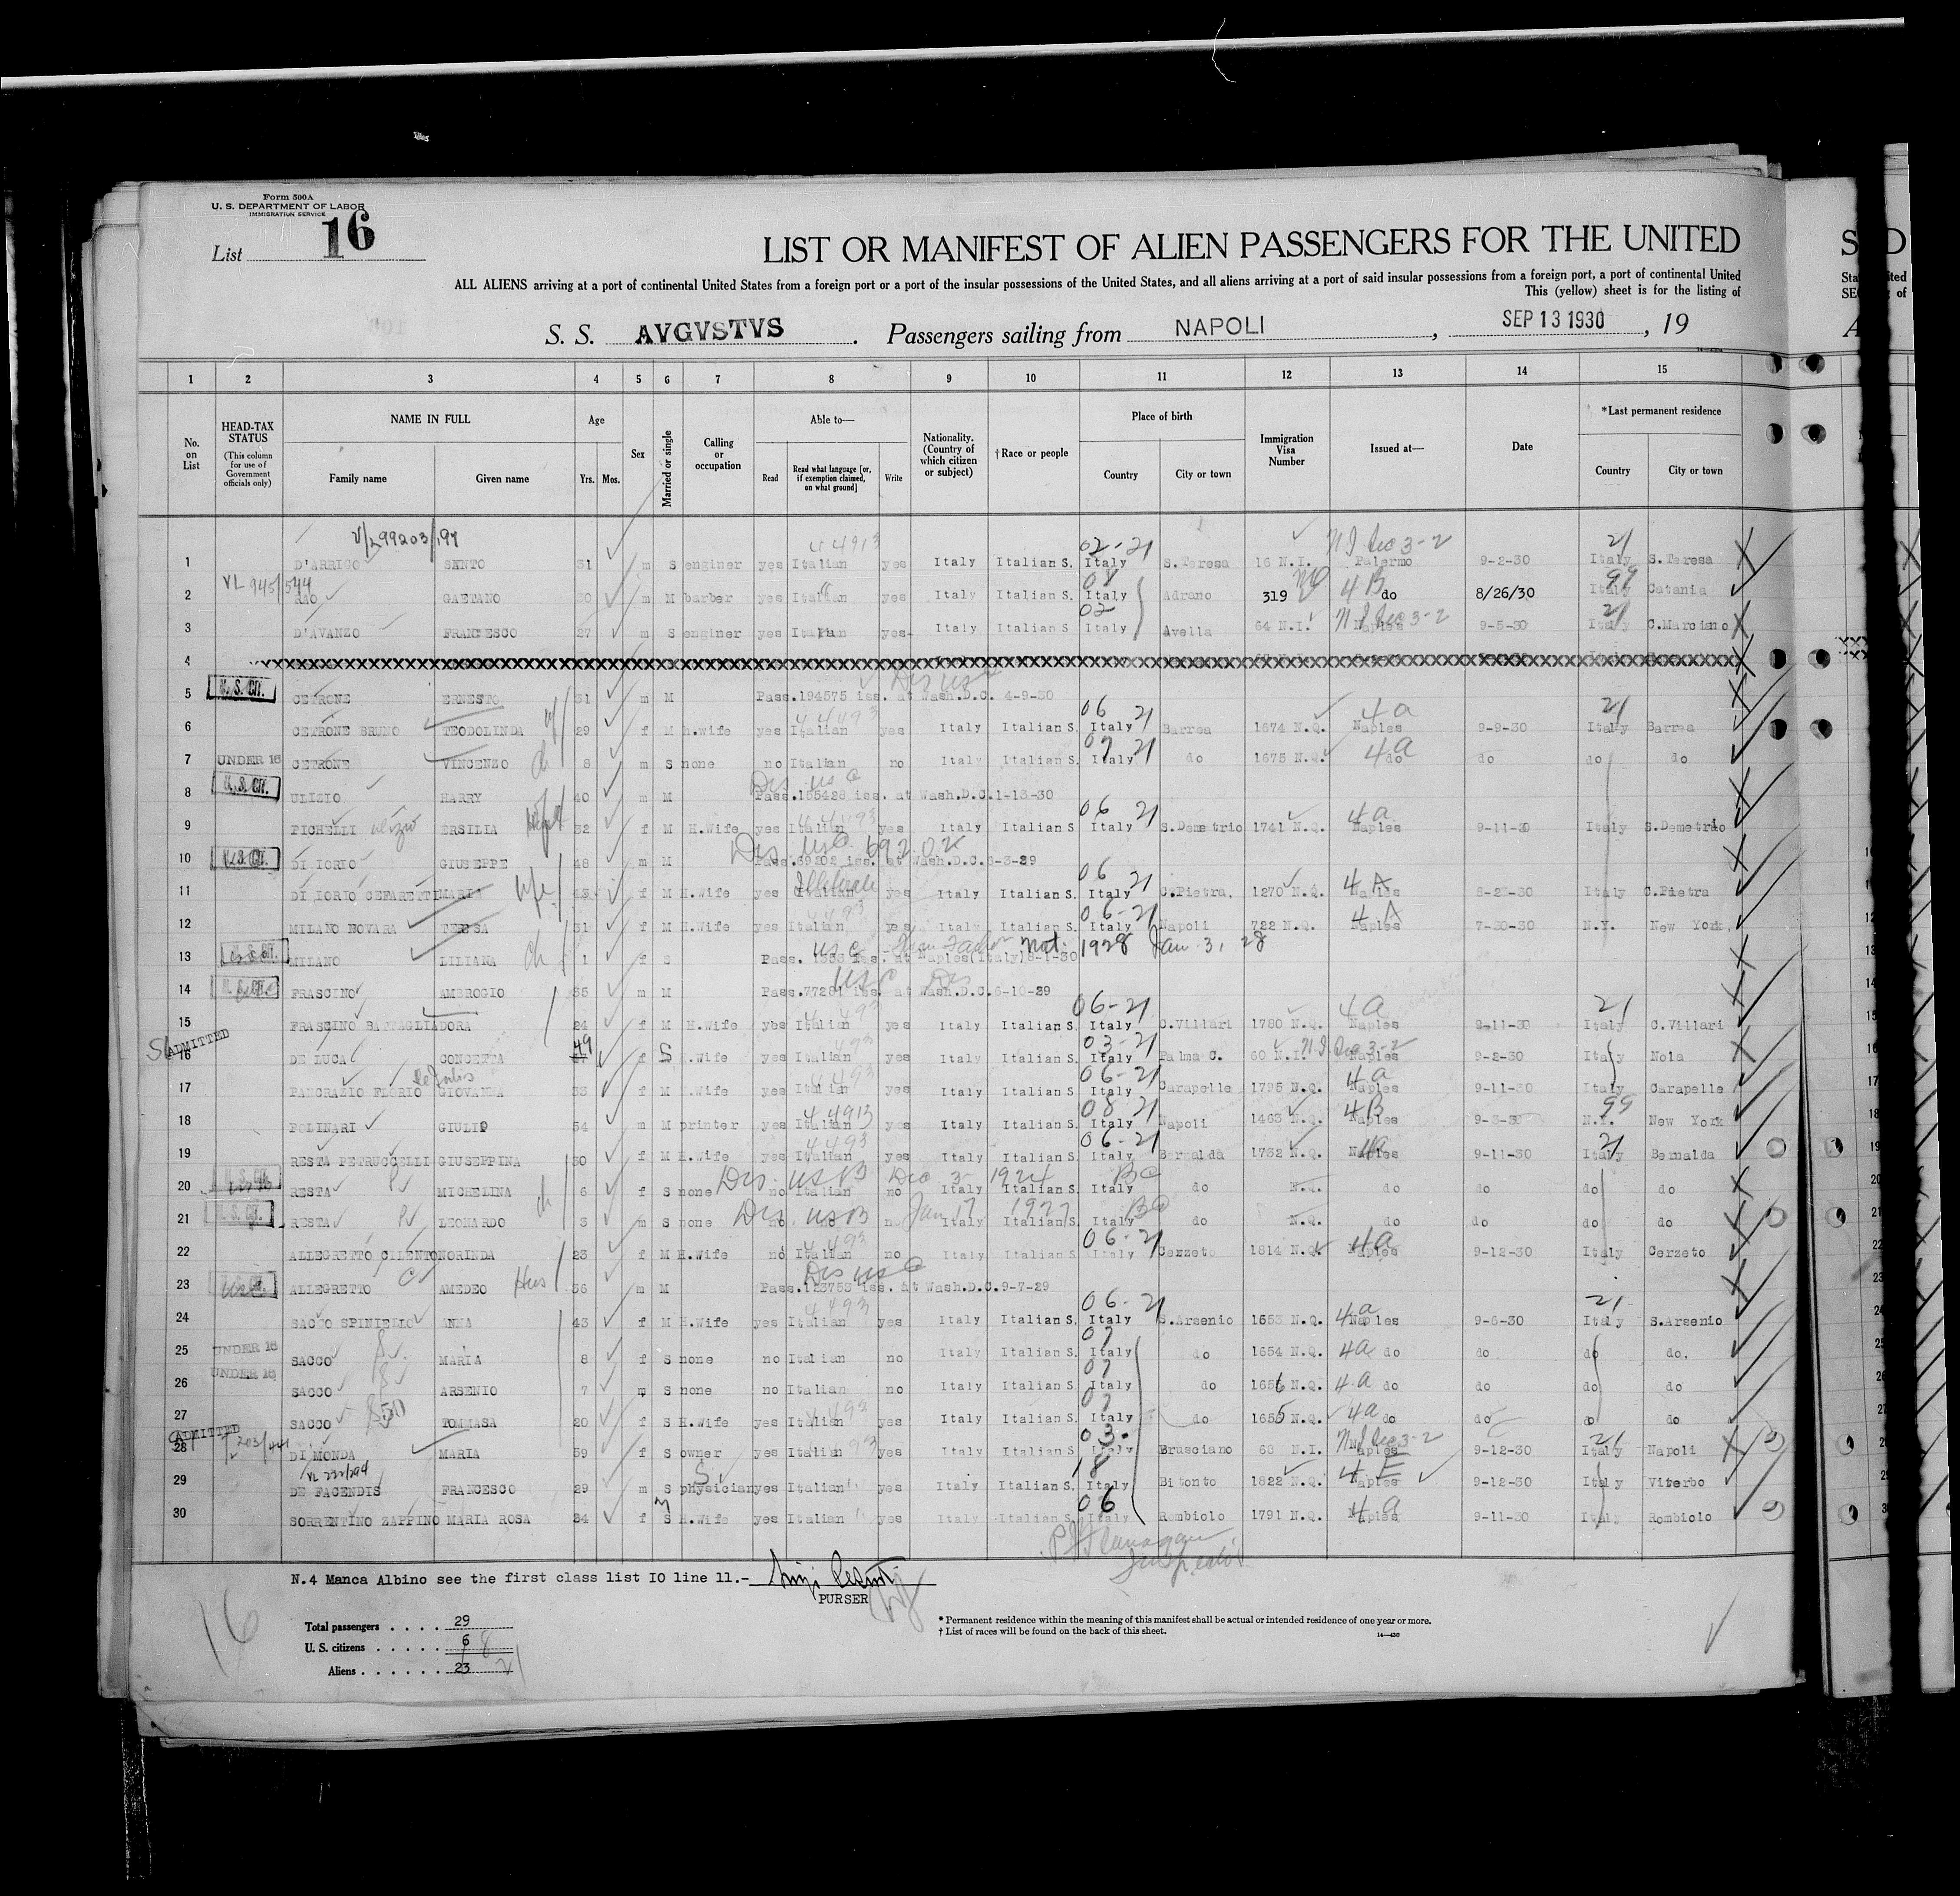 Form 500A
U. S. DEPARTMENT OF LABOR
IMMIGRATION SERVICE
List 16
LIST OR MANIFEST OF ALIEN PASSENGERS FOR THE UNITED
ALL ALIENS arriving at a port of continental United States from a foreign port or a port of the insular possessions of the United States, and all aliens arriving at a port of said insular possessions from a foreign port, a port of continental United
This (yellow) sheet is for the listing of
S. S. AVGVSTVS. Passengers sailing from NAPOLI, SEP 13 1930, 19
1 2 3 4 5 6 7 8 9 10 11 12 13 14 15
No. on List
HEAD-TAX STATUS (This column for use of Government officials only)
NAME IN FULL
Family name Given name
Age
Yrs. Mos.
Sex
Married or single
Calling or occupation
Able to—
Read Read what language [or, if exemption claimed, on what ground] Write
Nationality. (Country of which citizen or subject)
†Race or people
Place of birth
Country City or town
Immigration Visa Number
Issued at—
Date
*Last permanent residence
Country City or town
V/L 99203/197
1 D'ARRIGO SANTO 31 m S enginer yes Italian yes Italy Italian S. Italy S.Teresa 16 N.I. Palermo 9-2-30 Italy S.Teresa
VL 945/544
2 RAO GAETANO 30 m M barber yes Italian yes Italy Italian S. Italy Adrano 319 4B do 8/26/30 Italy Catania
3 D'AVANZO FRANCESCO 27 m S enginer yes Italian yes Italy Italian S Italy Avella 64 N.I. Naples 9-5-30 Italy C.Marciano
4
5 U.S. CIT. CETRONE ERNESTO 31 m M Pass.194575 iss. at Wash.D.C. 4-9-30
6 CETRONE BRUNO TEODOLINDA 29 f M h.wife yes Italian yes Italy Italian S. Italy Barrea 1674 N.Q. 4a Naples 9-9-30 Italy Barrea
7 UNDER 16 CETRONE VINCENZO ch 8 m S none no Italian no Italy Italian S. Italy do 1675 N.Q. 4a do do do do
8 U.S. CIT. ULIZIO HARRY 40 m M Pass.155428 iss. at Wash.D.C.1-13-30
9 PICHELLI ulizio ERSILIA wife 32 f M H.Wife yes Italian yes Italy Italian S Italy S.Demetrio 1741 N.Q. 4a Naples 9-11-30 Italy S.Demetrio
10 U.S. CIT. DI IORIO GIUSEPPE 48 m M Pass.69202 iss. at Wash.D.C.6-3-29
11 DI IORIO CEFARETTI MARIA wife 43 f M H.Wife yes Italian yes Italy Italian S. Italy C.Pietra. 1270 N.Q. 4A Naples Italy C.Pietra
12 MILANO NOVARA TERESA 31 f M H.Wife yes Italian yes Italy Italian S. Italy Napoli 722 N.Q. 4A Naples 7-30-30 N.Y. New York.
13 U.S. CIT. MILANO LILIANA ch 1 f S Nat. 1928 Jan 3, 28
14 U.S. CIT. FRASCINO AMBROGIO 35 m M Pass.77281 iss. at Wash.D.C.6-10-29
15 FRASCINO BATTAGLIA DORA 24 f M H.Wife yes Italian yes Italy Italian S. Italy C.Villari 1780 N.Q. 4a Naples 9-11-30 Italy C.Villari
ADMITTED
16 DE LUCA CONCETTA 49 f S H.wife yes Italian yes Italy Italian S. Italy Palma C. 60 N.I. Naples 9-2-30 Italy Nola
17 PANCRAZIO FLORIO GIOVANNA 33 f M H.wife yes Italian yes Italy Italian S. Italy Carapelle 1795 N.Q. 4a Naples 9-11-30 Italy Carapelle
18 POLINARI GIULIO 54 m M printer yes Italian yes Italy Italian S. Italy Napoli 1463 N.Q. 4B Naples N.Y. New York
19 RESTA PETRUCCELLI GIUSEPPINA 30 f M H.Wife yes Italian yes Italy Italian S. Italy Bernalda 1762 N.Q. 4a Naples 9-11-30 Italy Bernalda
20 U.S. CIT. RESTA MICHELINA ch 6 f S none no Italian no Italy Italian S. Italy do N.Q. do do do do
21 U.S. CIT. RESTA LEONARDO 3 m S none no Italy Italian S. Italy do N.Q. do do do do
22 ALLEGRETTO CILENTO NORINDA 23 f M H.Wife no Italian no Italy Italian S. Italy Cerzeto 1814 N.Q. 4a Naples 9-12-30 Italy Cerzeto
23 U.S. CIT. ALLEGRETTO AMEDEO Hus 36 m M Pass.123753 iss. at Wash.D.C.9-7-29
24 SACCO SPINIELLO ANNA 43 f M H.Wife yes Italian yes Italy Italian S. Italy S.Arsenio 1653 N.Q. 4a Naples 9-6-30 Italy S.Arsenio
25 UNDER 16 SACCO MARIA 8 f S none no Italian no Italy Italian S. Italy do 1654 N.Q. 4a do do do do.
26 UNDER 16 SACCO ARSENIO 7 m S none no Italian no Italy Italian S. Italy do 1656 N.Q. 4a do do do do
27 SACCO TOMMASA 20 f S H.Wife yes Italian yes Italy Italian S. Italy do 1655 N.Q. 4a do do do do
ADMITTED
28 DI MONDA MARIA 59 f S owner yes Italian yes Italy Italian S. Italy Brusciano 63 N.I. Naples 9-12-30 Italy Napoli
29 DE FACENDIS FRANCESCO 29 m S physician yes Italian yes Italy Italian S. Italy Bitonto 1822 N.Q. 4E Naples 9-12-30 Italy Viterbo
30 SORRENTINO ZAPPINO MARIA ROSA 34 f S H.Wife yes Italian yes Italy Italian S. Italy Rombiolo 1791 N.Q. 4a Naples 9-11-30 Italy Rombiolo
P J Flanagan
Inspector
N.4 Manca Albino see the first class list IO line 11.-
PURSER
16
Total passengers . . . . 29
U. S. citizens . . . . . 6 8
Aliens . . . . . . 23 21
* Permanent residence within the meaning of this manifest shall be actual or intended residence of one year or more.
† List of races will be found on the back of this sheet.
14—430